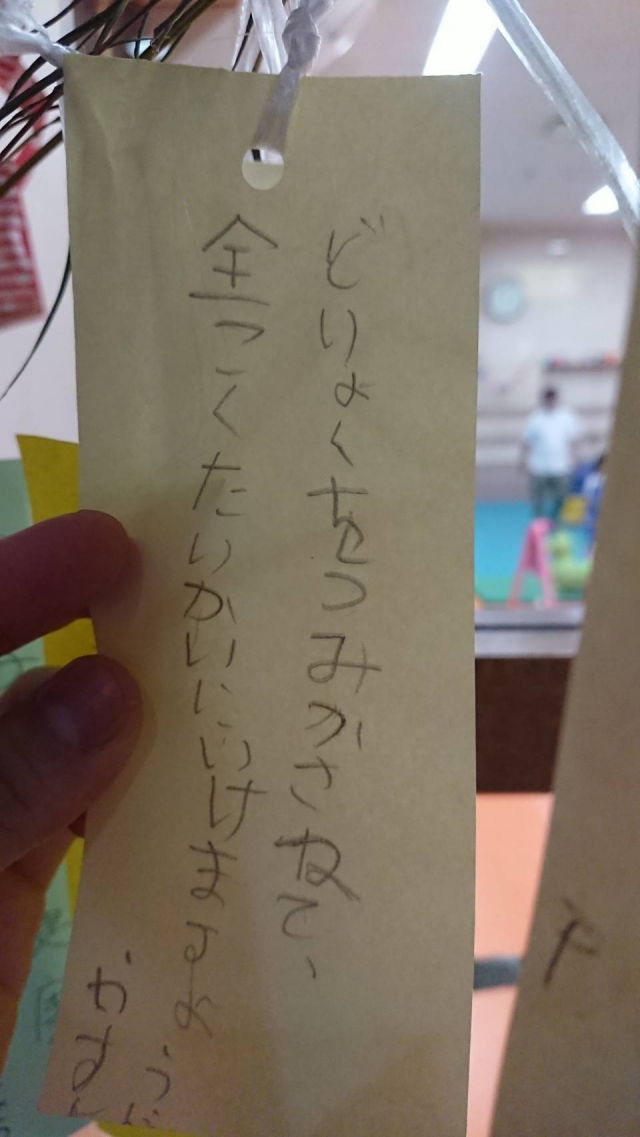 どりょくをつみかさねて、
全っこくたいかいにいけますよ
うに
かず